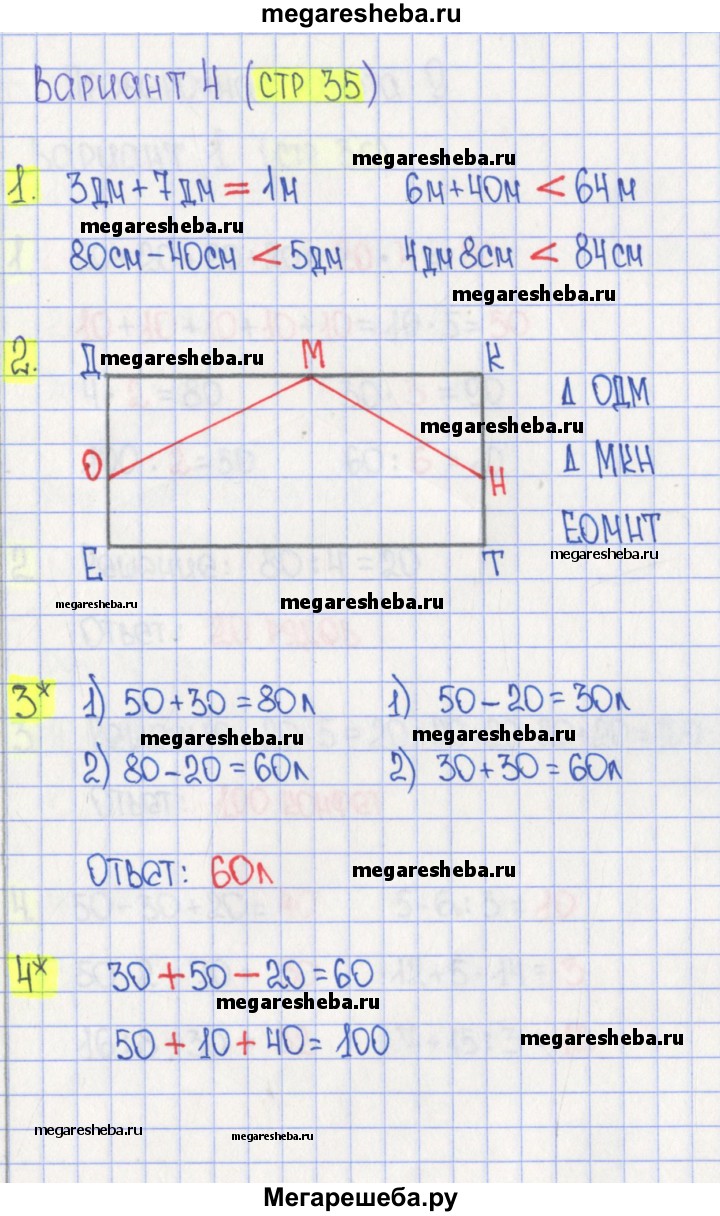 megaresheba.ru
Вариант 4 (стр 35)
megaresheba.ru
1. 3дм + 7дм = 1м 6м + 40м < 64м
megaresheba.ru
80см - 40см < 5дм 4дм 8см < 84см
megaresheba.ru
2. Д megaresheba.ru М К
Δ ОДМ
megaresheba.ru
О Н Δ МКН
ЕОМНТ
megaresheba.ru
Е Т
megaresheba.ru megaresheba.ru
3* 1) 50 + 30 = 80л 1) 50 - 20 = 30л
megaresheba.ru megaresheba.ru
2) 80 - 20 = 60л 2) 30 + 30 = 60л
Ответ: 60л megaresheba.ru
4* 30 + 50 - 20 = 60
megaresheba.ru
50 + 10 + 40 = 100 megaresheba.ru
megaresheba.ru megaresheba.ru
Мегарешеба.ру